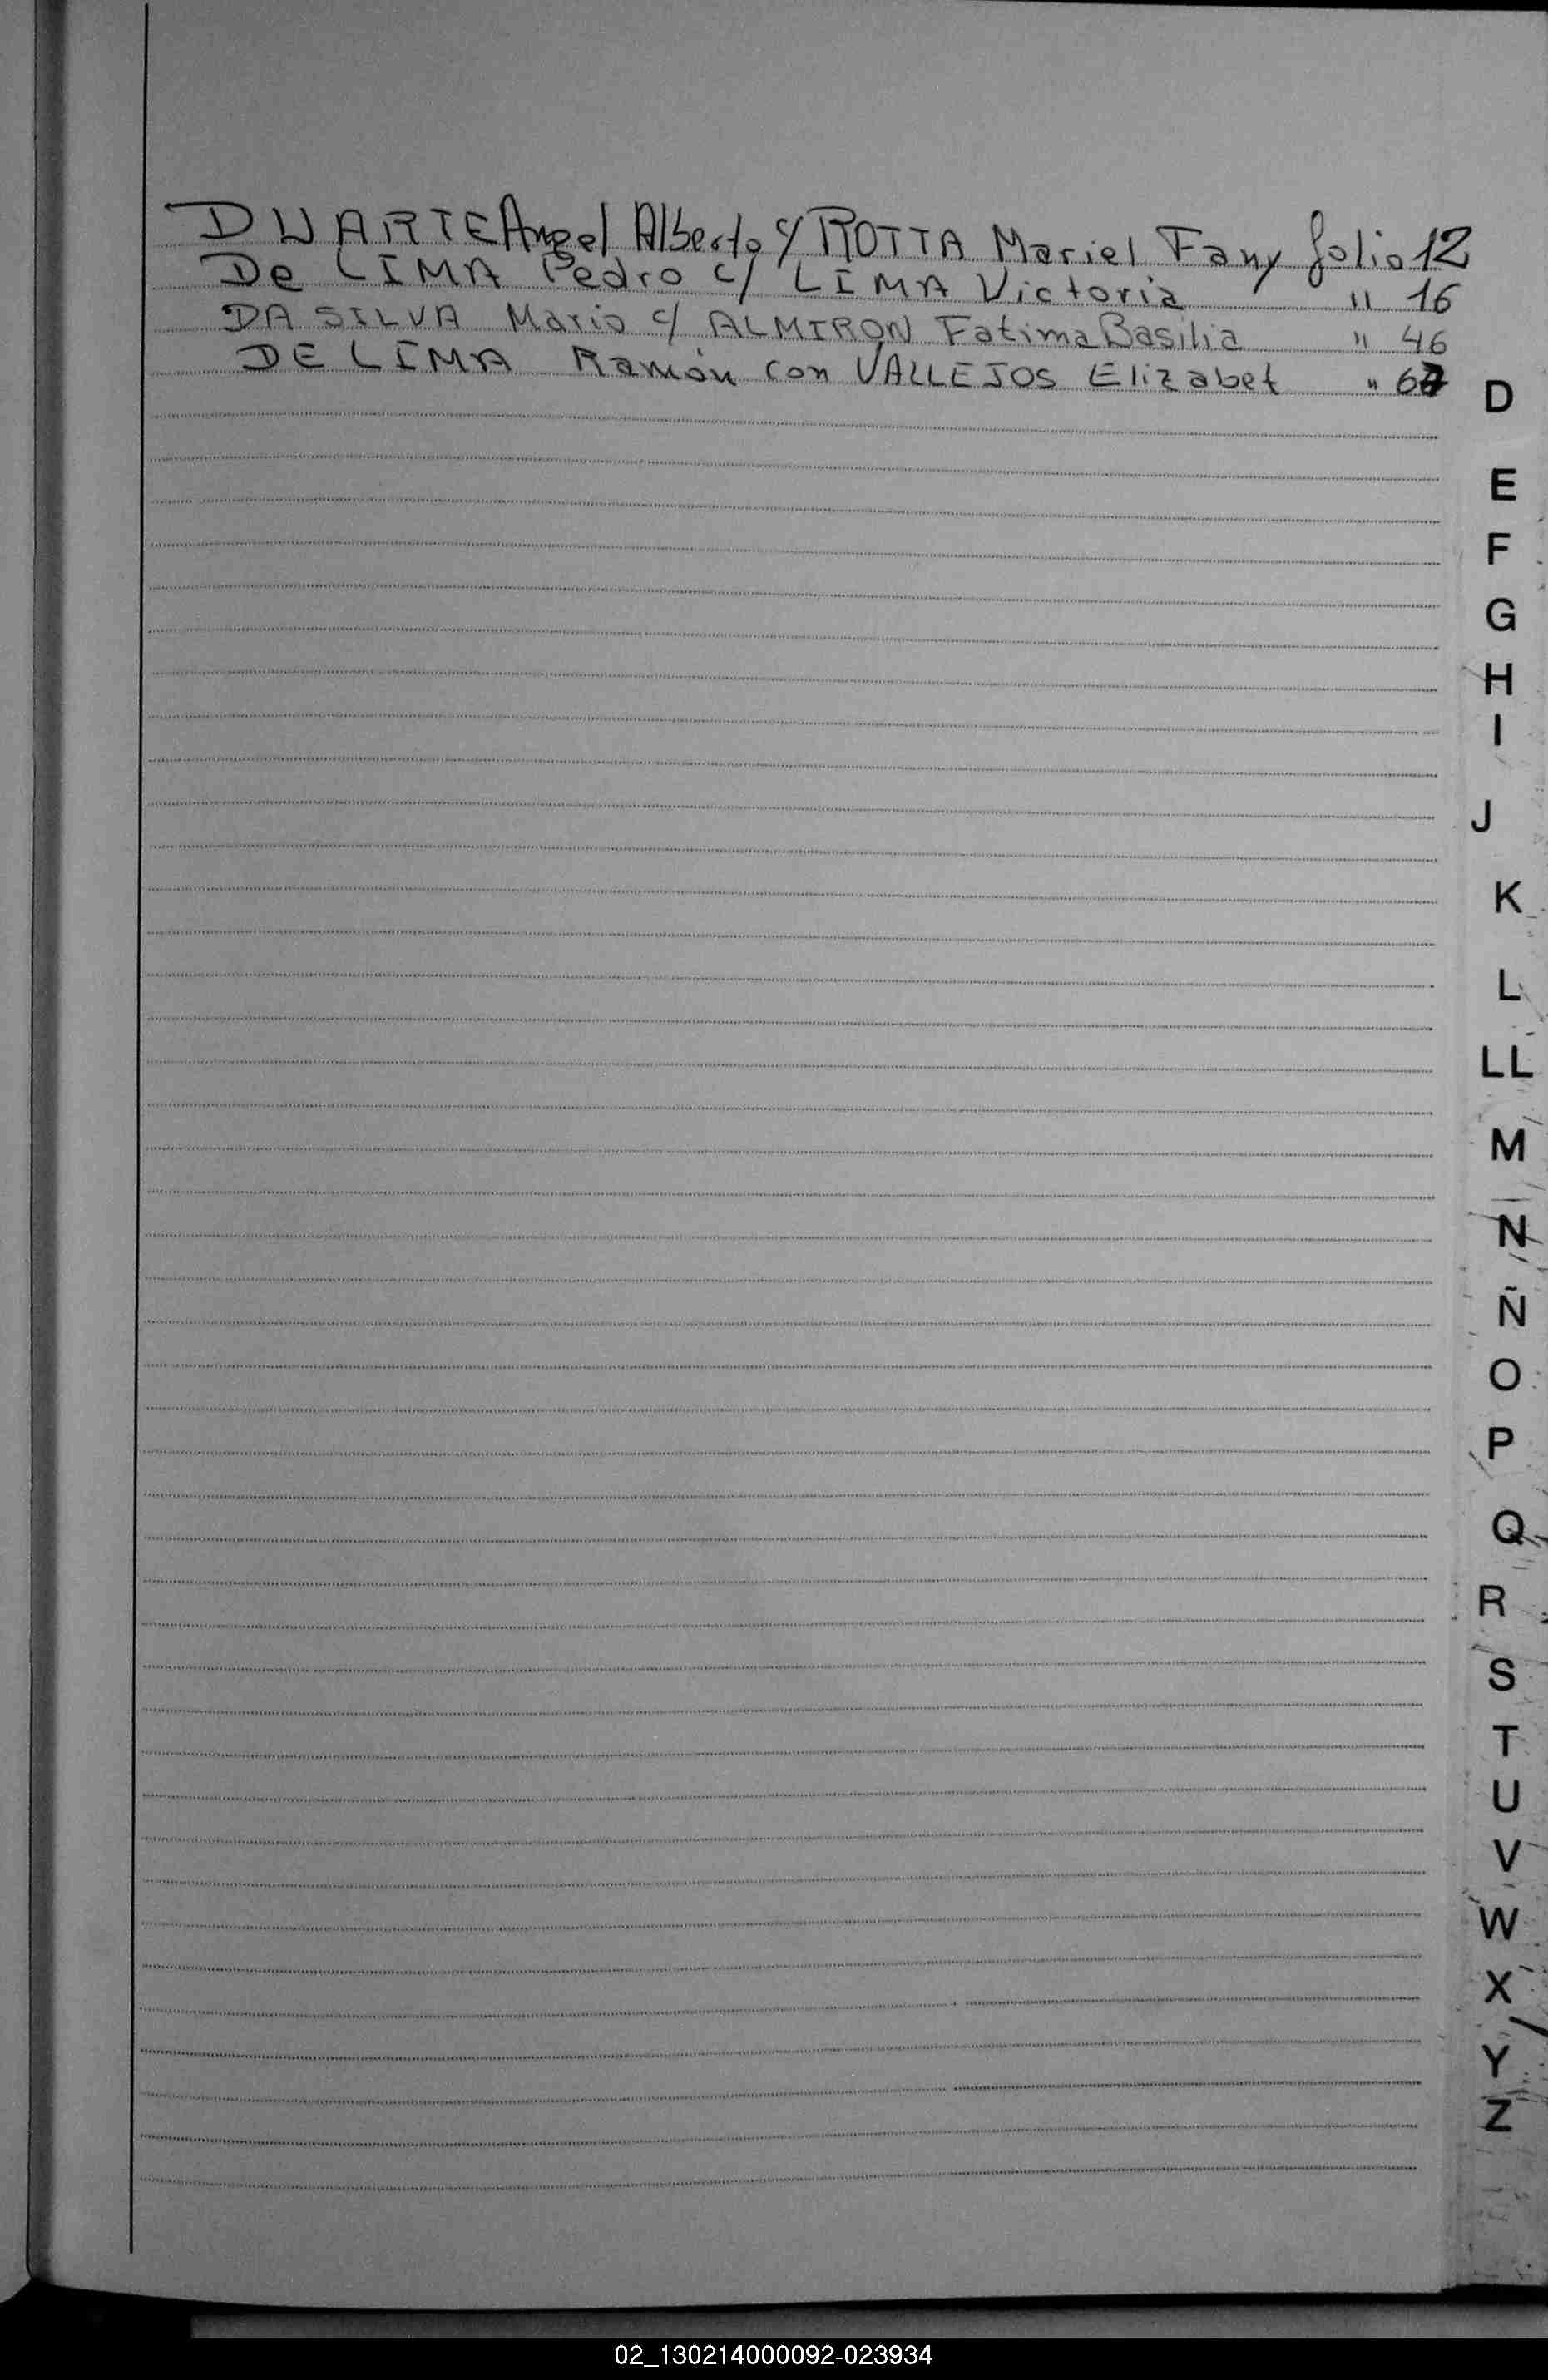 DUARTE Angel Alberto c/ ROTTA Mariel Fany folio 12
De LIMA Pedro c/ LIMA Victoria " 16
DA SILVA Mario c/ ALMIRON Fatima Basilia " 46
DE LIMA Ramón con VALLEJOS Elizabet "
D
E
F
G
H
I
J
K
L
LL
M
N
Ñ
O
P
Q
R
S
T
U
V
W
X
Y
Z
02_130214000092-023934